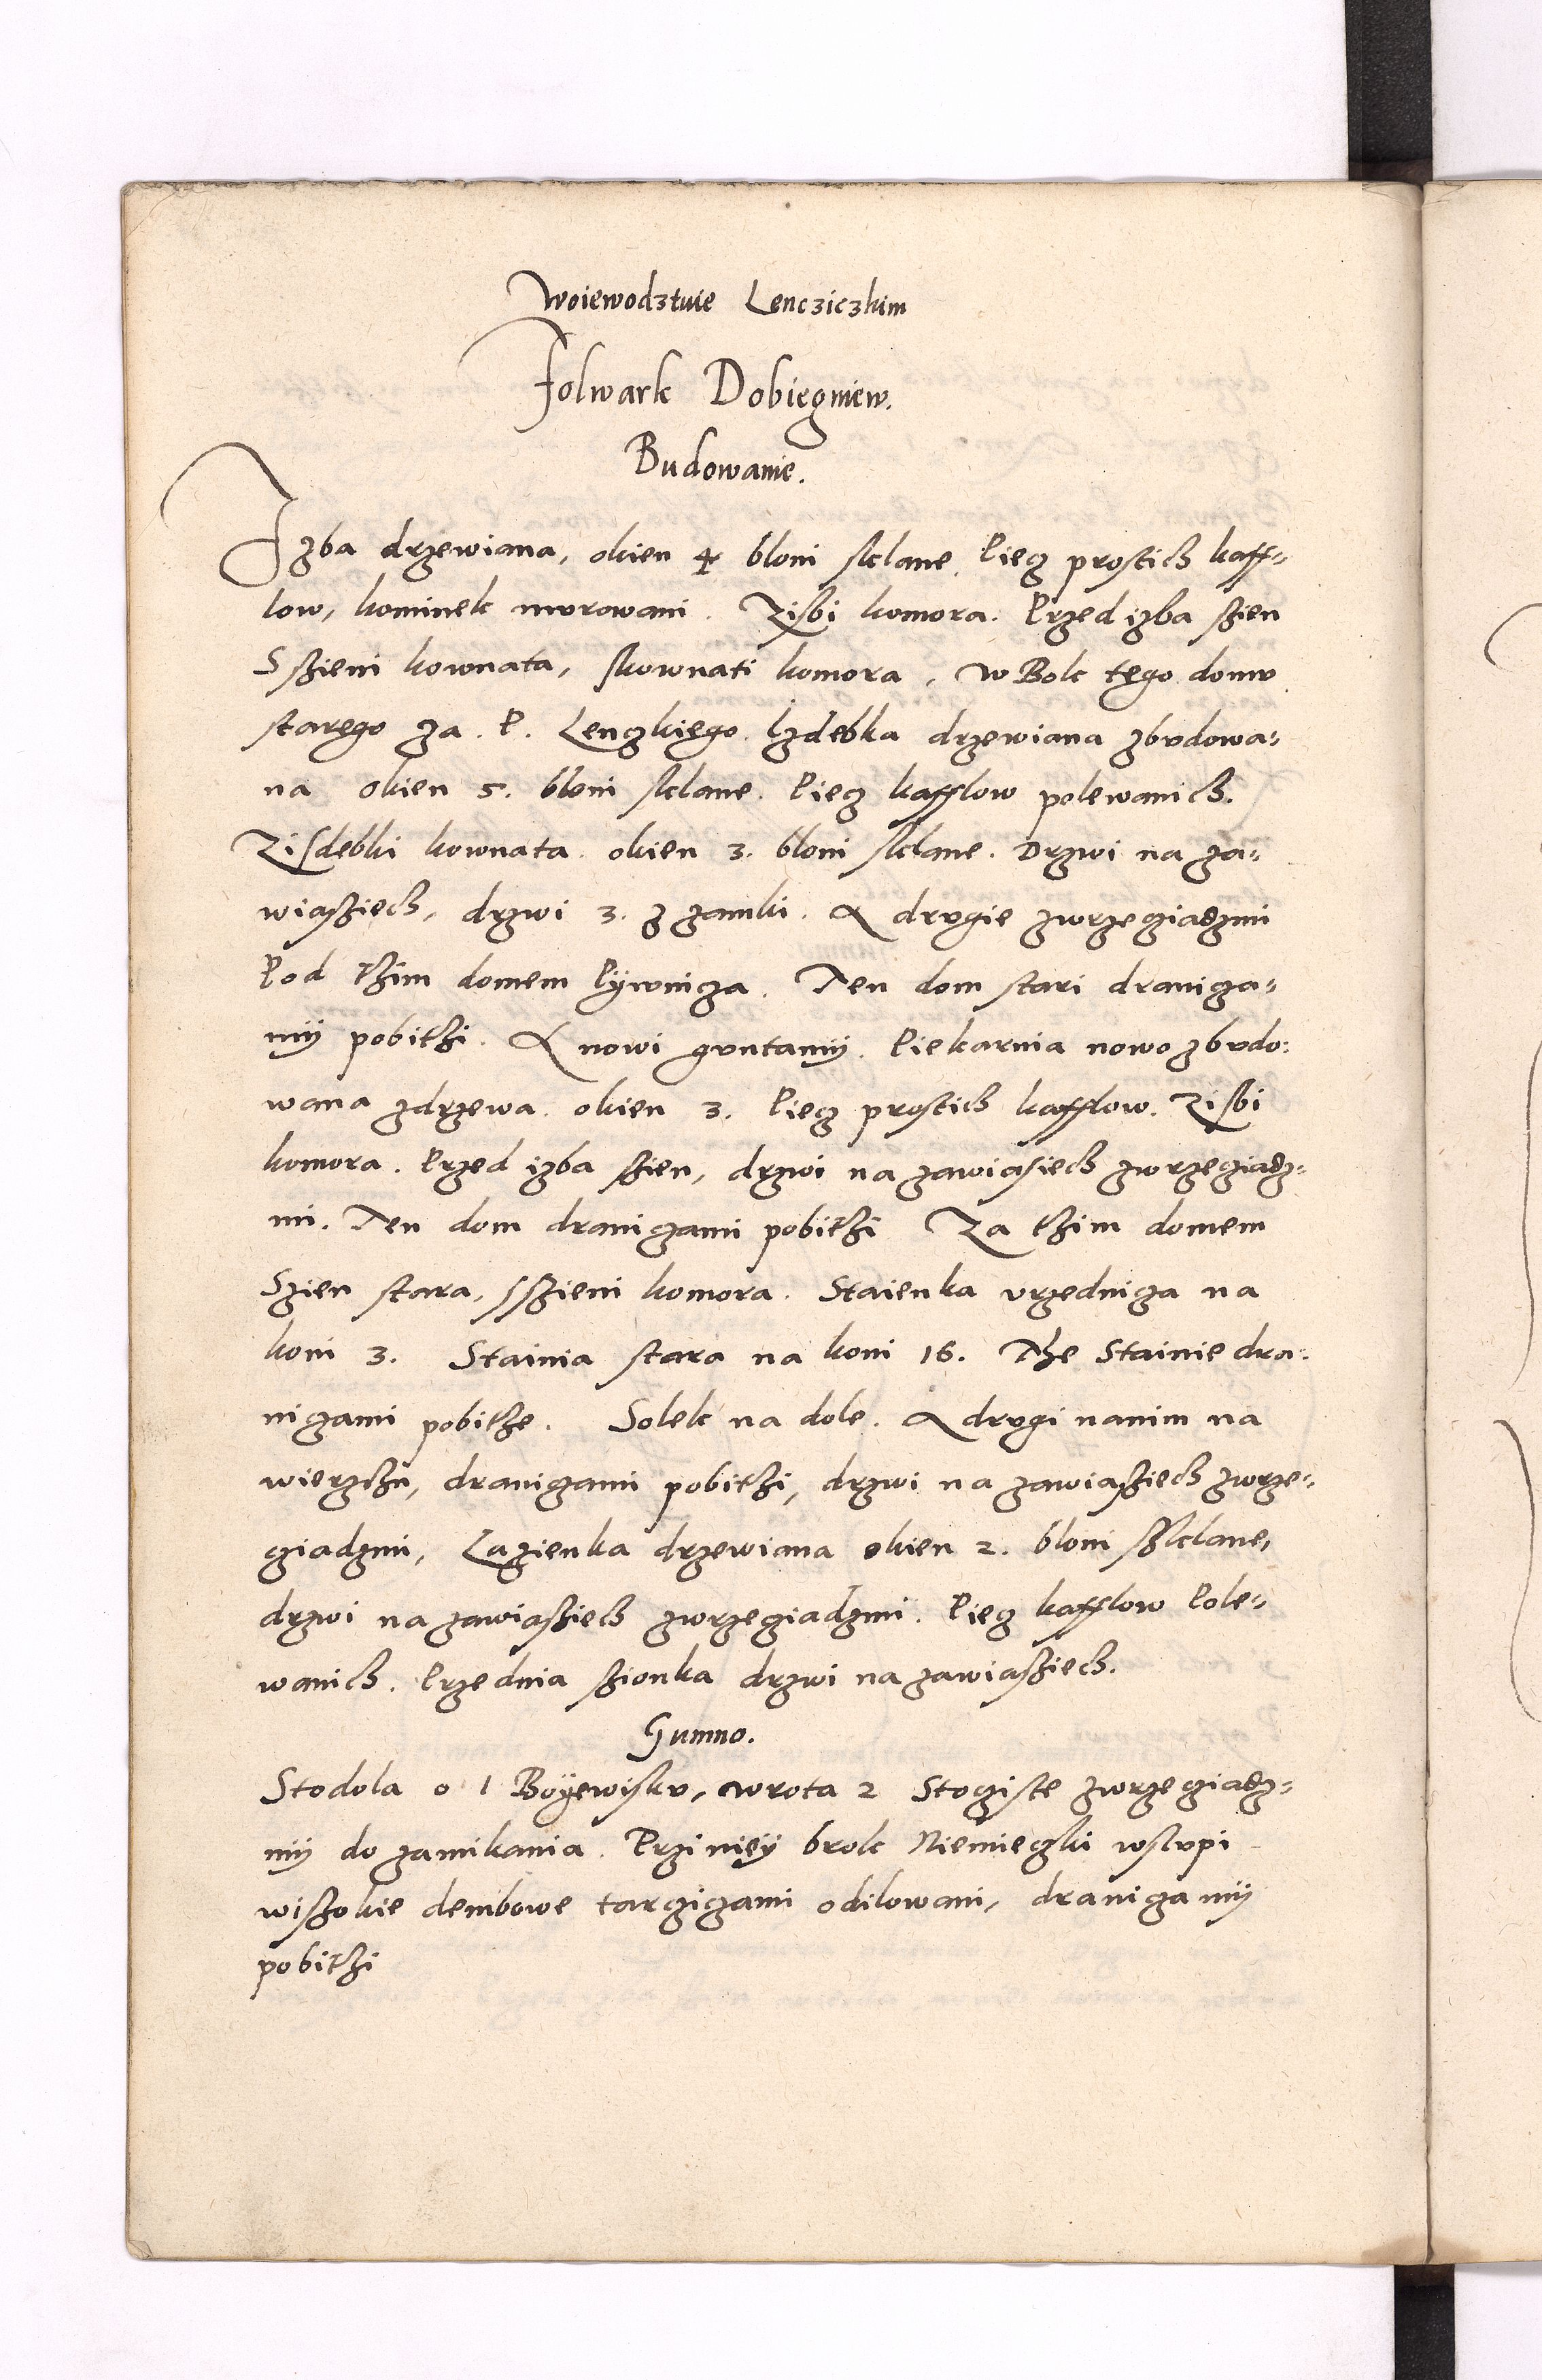 Woiewodztwie Lencziczkim
Folwark Dobiegniew.
Budowanie.
Izba drzewiana, okien 4 bloni sklane. Piecz prostich kaff=
low, kominek mvrowani. Zisbi komora. Przed izba szien
S szieni kownata, skownati komora, w Bok tego domv
starego za. P. Lenczkiego. Izdebka drzewiana zbvdowa=
na okien 5. bloni sklane. Piecz kafflow polewanich.
Zisdebki kownata. okien 3. bloni sklane. Drzwi na za=
wiasziech, drzwi 3. z zamki. A drvgie zwrzecziadzmi
Pod thim domem Pywnicza. Ten dom stari dranicza=
my pobithi. A nowi gontamy. Piekarnia nowo zbvdo=
wana zdrzewa. okien 3. Piecz prostich kafflow. Zisbi
komora. Przed izba szien, drzwi na zawiasiech zwrzecziadz=
mi. Ten dom draniczami pobithi Za thim domem
Szien stara, sszieni komora. Staienka vrzednicza na
koni 3. Stainia stara na koni 16. The Stainie dra=
niczami pobithe. Solek na dole. A drvgi nanim na
wierzchv, draniczami pobithi, drzwi na zawiasziech zwrze=
cziadzmi, Lazienka drzewiana okien 2. bloni szklane,
drzwi na zawiasziech zwrzecziadzmi. Piecz kafflow Pole=
wanich. Przednia szionka drzwi na zawiasziech.
Gumno.
Stodola o 1 Boyewiskv, wrota 2 Stogiste zwrzecziadz=
my do zamikania. Prziniey brok Niemieczki wslvpi
wiszokie dembowe tarczicami odilowani, draniczamy
pobithi